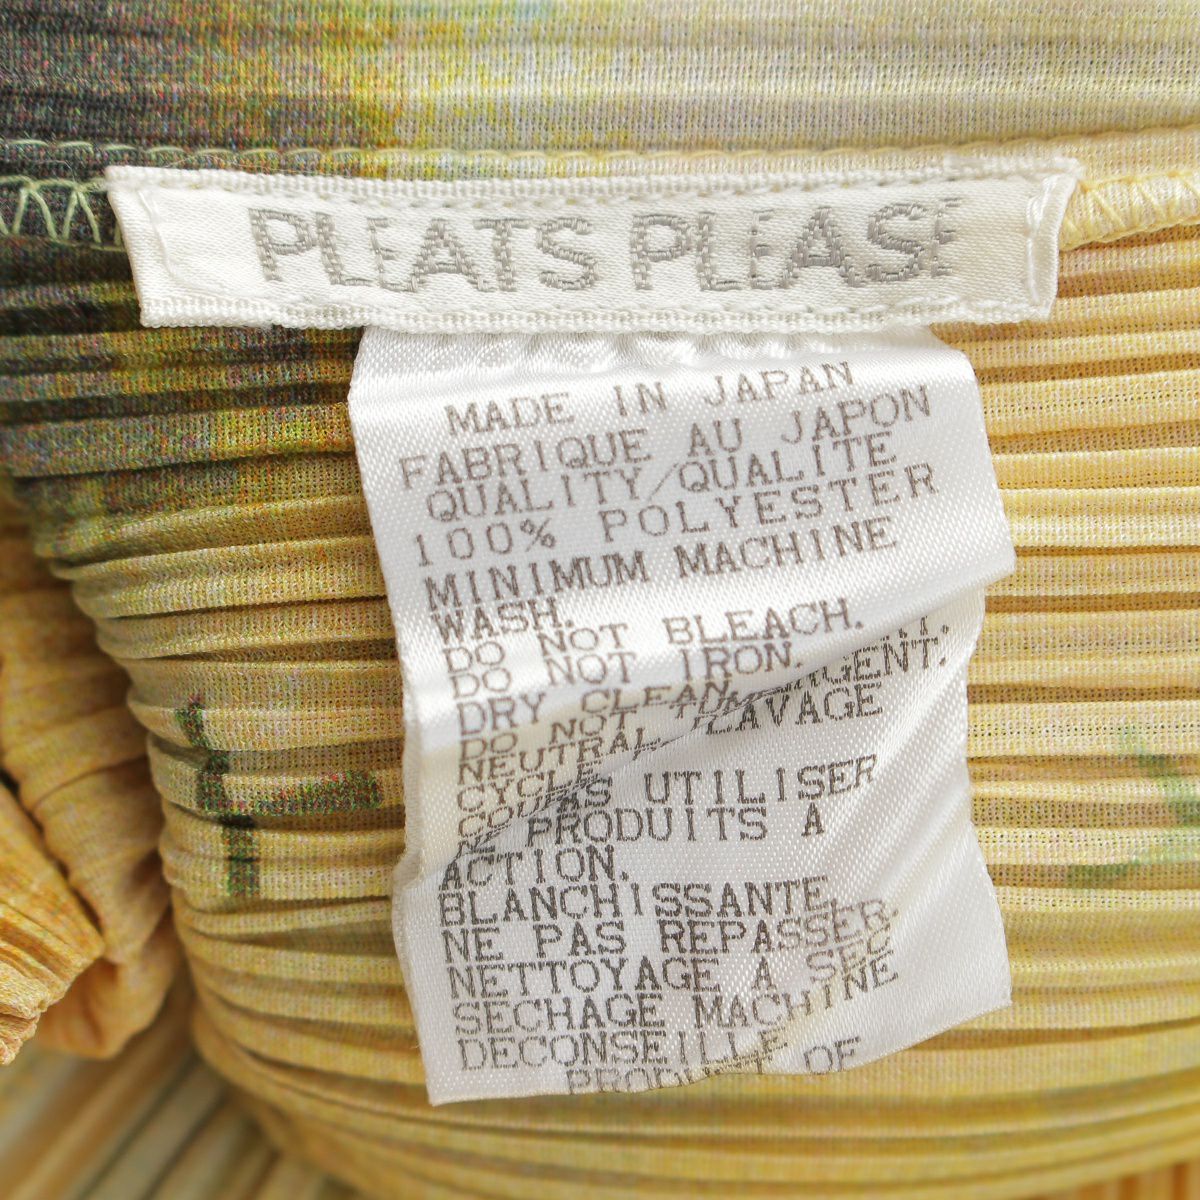 PLEATS PLEASE
MADE IN JAPAN
FABRIQUE AU JAPON
QUALITY/QUALITE
100% POLYESTER
MINIMUM MACHINE
WASH.
DO NOT BLEACH.
DO NOT IRON.
DRY CLEAN
DO NOT
NEUTRAL
CYCLE LAVAGE
UTILISER
PRODUITS A
ACTION.
BLANCHISSANTE
NE PAS REPASSER.
NETTOYAGE A SEC
SECHAGE MACHINE
DECONSEILLE
OF